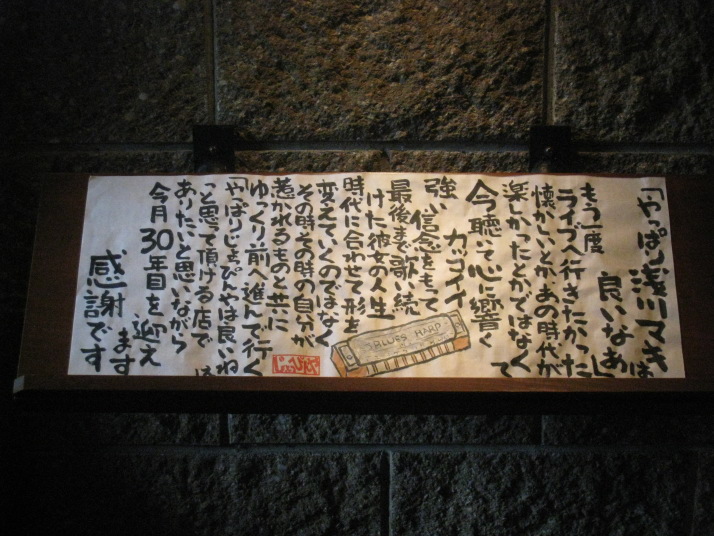 「やっぱり浅川マキは
良いなあ」
もう一度
ライブへ行きたかった
懐かしいとかあの時代が
楽しかったとかではなくて
今聴いて心に響く
カッコイイ
強い信念をもって
最後まで歌い続
けた彼女の人生
時代に合わせて形を
変えていくのではなく
その時その時の自分が
惹かれるものと共に
ゆっくり前へ進んで行く
「やっぱりじょっぴんやは良いね」
っと思って頂ける店で
ありたいと思いながら
今月30年目を迎え
ます
感謝です
BLUES HARP